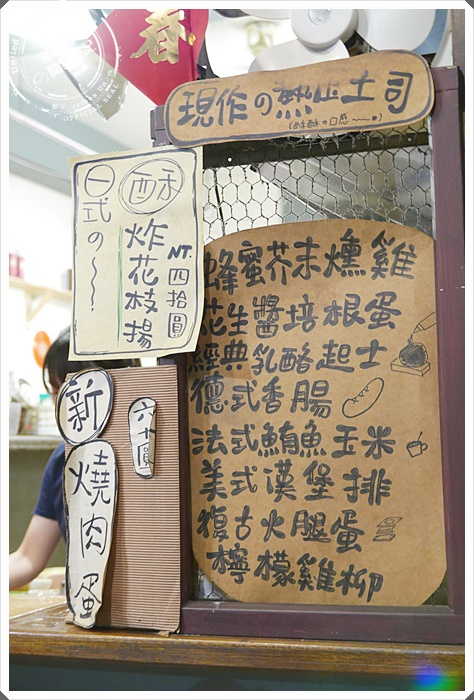 春
現作の熱山土司
(酥酥の口感~~~)
日式の~~
酥
炸花枝揚
NT.四拾圓
蜂蜜芥末燻雞
花生醬培根蛋
經典乳酪起士
德式香腸
法式鮪魚玉米
美式漢堡排
復古火腿蛋
檸檬雞柳
新
六十圓
燒肉蛋